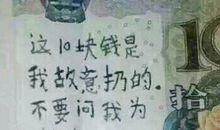 这10块钱是
我故意扔的.
不要问我为
10
拾